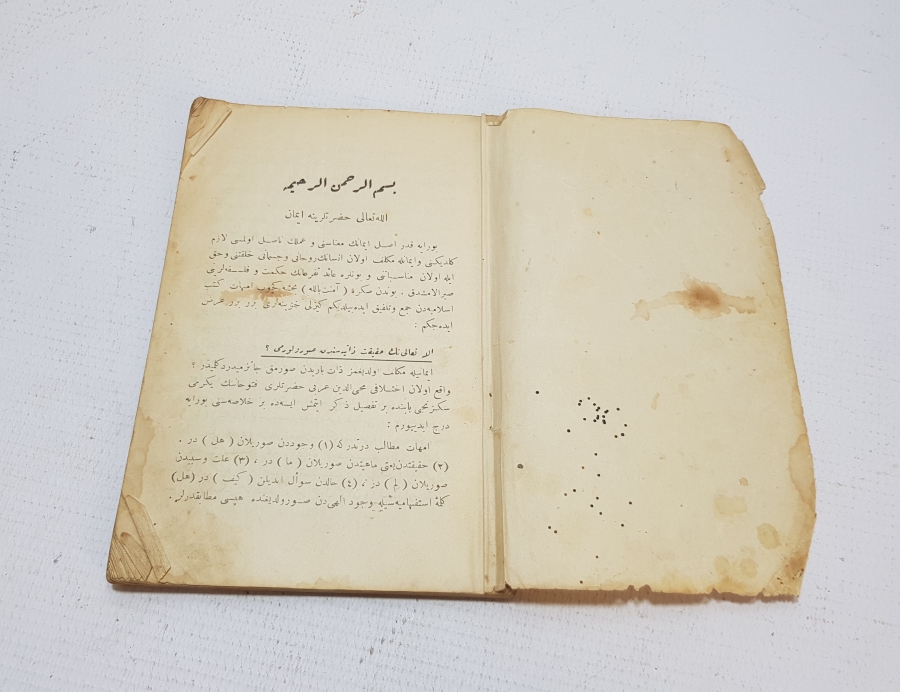 بسم الرحمن الرحيم
الله تعالى حضرتلرينه ايمان
بورايه قدر اصل ايمانك معناسنى و عملك ناصل اولمسى لازم
كلديكنى وايمانله مكلف اولان انسانك روحانى وجسمانى خلقتنى وحق
ايله اولان مناسباتنى و بونلره عائد تفرعاتك حكمت و فلسفه لرينى
صيرالامشدق . بوندن صكره ( آمنت بالله ) امهات كتب
اسلاميه دن جمع وتلفيق ايده بيلديكم كيزلى خزينه لرى برر برر عرض
ايده جكم :
الله تعالى نك حقيقت ذاتيه سندن صورولورمى ؟
ايمانيله مكلف اولديغمز ذات باريدن صورمق جائزميدر دكلميدر ؟
واقع اولان اختلافى محى الدين عربى حضرتلرى فتوحاتنك يكرمى
سكزنجى بابنده بر تفصيل ذكر ايتمش ايسه ده بر خلاصه سنى بورايه
درج ايدييورم :
امهات مطالب درتدر كه (١) وجوددن صوريلان ( هل ) در .
(٢) حقيقتدن يعنى ماهيتدن صوريلان ( ما ) در ، (٣) علت وسببدن
صوريلان ( لم ) در ، (٤) حالدن سوأل ايديلن ( كيف ) در (هل)
كلمۀ استفهاميه سيله وجود الهى دن صورولديغنده هپسى مطابقدرلر .